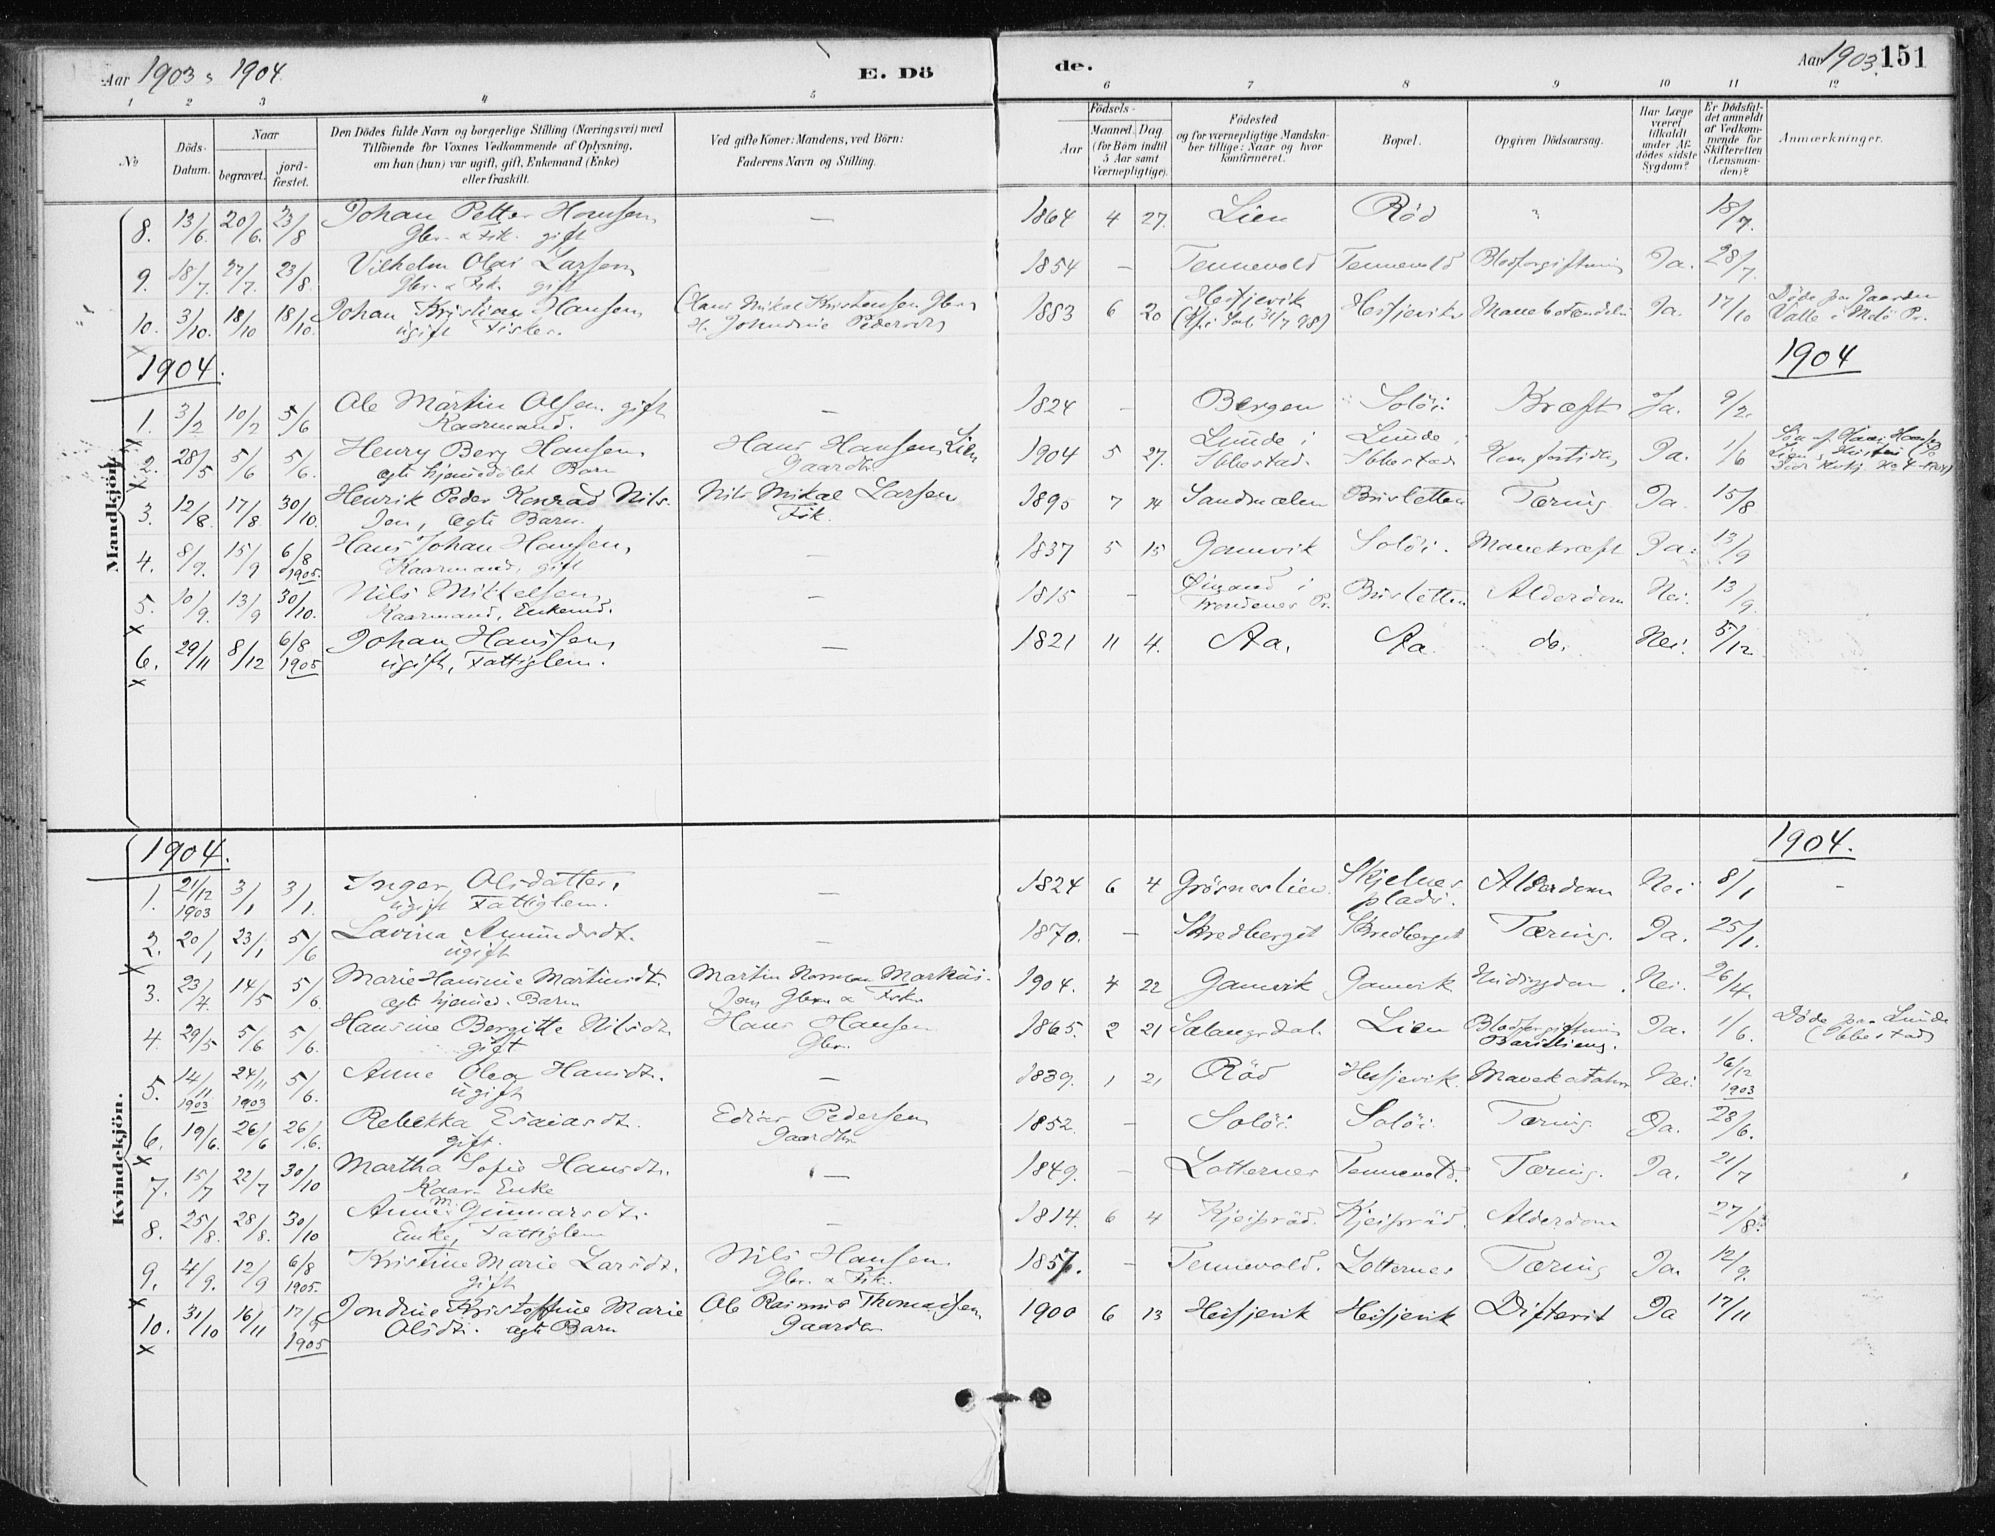 Aar 1903 & 1904.
E. Dö
de.
Aar 1903. 151
1 2 3 4 5 6 7 8 9 10 11 12
No
Döds-Datum.
Naar
begravet.
jordfæstet.
Den Dödes fulde Navn og borgerlige Stilling (Næringsvei) med
Tilföiende for Voxnes Vedkommende af Oplysning,
om han (hun) var ugift, gift, Enkemand (Enke)
eller fraskilt.
Ved gifte Koner: Mandens, ved Börn:
Faderens Navn og Stilling.
Födsels-
Aar
Maaned. Dag.
(for Børn indtil
5 Aar samt
Værnepligtige).
Födested
og for værnepligtige Mandska-
ber tillige: Naar og hvor
konfirmeret.
Bopæl.
Opgiven Dödsaarsag.
Har Læge
været
tilkaldt
under Af-
dödes sidste
Sygdom?
Er Dødsfal-
det anmeldt
af Vedkom-
mende for
Skifteretten
(Lensman-
den)?
Anmærkninger.
Mandkjön.
8. 13/6 20/6. 23/8 Johan Petter Hansen — 1864 4 27. Lien Röd " 18/7.
Gbr. & Fsk. gift
9. 18/7. 27/7. 23/8. Vilhelm Olai Larsen 1854 — Tennevold Tennevold Blodforgiftning Ja. 28/7.
Gbr. & Fsk. gift
10. 3/10. 18/10 18/10. Johan Kristian Hansen 1883 6 20 Hessjevik Hessjevik Mavebetændelse Ja. 17/10 Döde paa Gaarden
ugift Fisker. H. Johndine Pedersdtr Valle i Melö Pr.
1904. 1904
1. 3/2 10/2 5/6 Ole Martin Olsen gift — 1824 — Bergen Solöi Kræft Ja. 9/2.
Kaarmand.
2. 28/5 5/6 5/6. Henry Berg Hansen Hans Hansen, Lien 1904 5 27. Lunde i Lunde, Ja. 1/6
ægte hjemmedöbt Barn Gaardbr Ibbestad. Ibbestad
3. 12/8. 17/8 30/10. Henrik Peder Konrad Nils- Nils Mikal Larsen 1890 7 14 Sandmælen Brusletten Tæring Ja. 15/8
sen, ægte Barn. Fsk.
4. 8/9. 15/9 6/8 1905. Hans Johan Hansen — 1837 5 15 Gamvik Solöi. Mavekræft Ja. 13/9
Kaarmand, gift
5. 10/9. 13/9 30/10. Nils Mikkelsen — 1815 — i Brusletten Alderdom Nei. 13/9.
Kaarmand, Enkemd. Trondenes Pr.
6. 29/11 8/12 6/8 1905 Johan Hanssen — 1821 11 4. Aa. Aa. do. Nei. 5/12.
ugift, Fattiglem.
Kvindekjön.
1904. 1904.
1. 21/12 1903 3/1 3/1. Inger Olsdatter, — 1824 6 4 Grösneslien Skjelnes Alderdom Nei 8/1 -
ugift Fattiglem. plads.
2. 20/1 23/1 5/6 Lavina Amundsdt. — 1870. — Skredberget Skredberget Tæring. Ja. 25/1.
ugift
3. 23/4 14/5 5/6. Marie Hansine Martinsdt. Martin Norman Markus- 1904. 4 22 Gamvik Gamvik Nei. 26/4.
ægte hjemmed. Barn sen Gbr. & Fsk.
4. 29/5 5/6 5/6. Hansine Bergitte Nilsdt. Hans Hansen 1865. 2 21 Salangsdal. Lien Blodforgiftning Ja. 1/6. Döde paa Lunde
gift Gbr. Barselseng. (Ibbestad)
5. 14/11 1903 24/11 1903 5/6. Anne Olea Hansdt. — 1839. 1 21 Röd Hessjevik Mavekatahrr Nei. 16/12 1903
ugift
6. 19/6. 26/6 26/6. Rebekka Esaiasdt. Edias Pedersen 1852. — Solöi Solöi Tæring Ja. 28/6.
gift. Gaardbr.
7. 15/7 22/7 30/10 Martha Sofie Hansdt. — 1849. — Lotternes Tennevold. Tæring. Ja. 21/7
Kaar-Enke
8. 25/8. 28/8. 30/10 Anne M. Gunnarsdt. — 1814. 6 4 Kjeipröd. Kjeipröd. Alderdom 27/8.
Enke, Fattiglem
9. 4/9. 12/9 6/8 1905. Kristine Marie Larsdt. Nils Hansen 1857. — Tennevold. Lotternes Tæring Ja 12/9.
gift Gbr. & Fsk.
10. 31/10 16/11 17/9 1905 Jondine Kristoffine Marie Ole Rasmus Thomassen 1900 6 13 Hessjevik Hessjevik Difterit Ja 17/11
Olsdt. ægte Barn Gaardbr